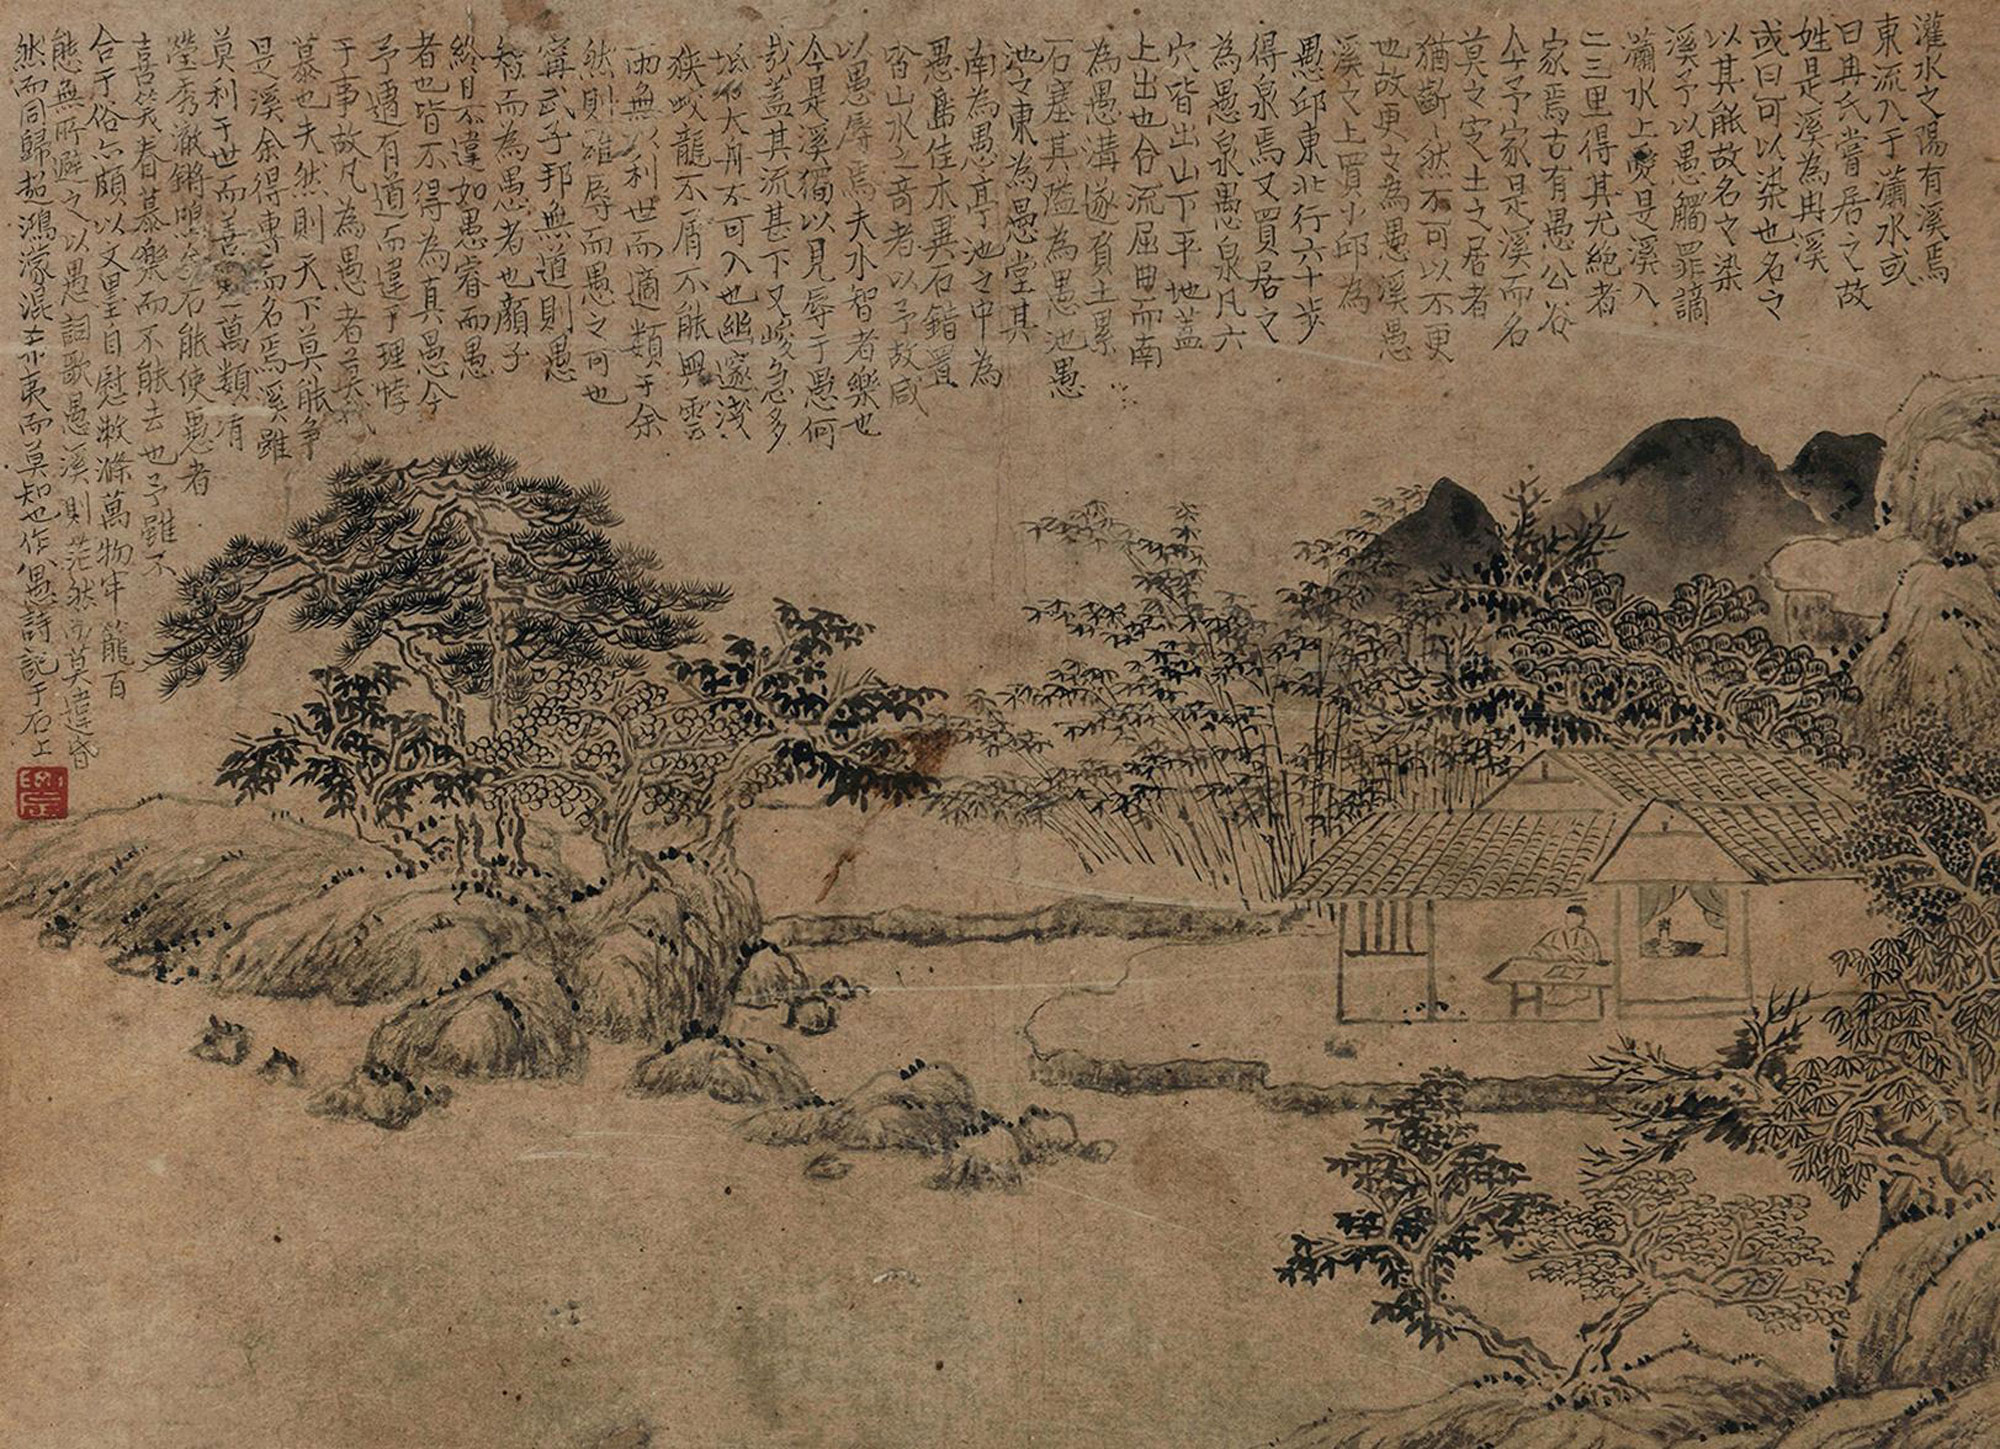 灌水之陽有溪焉
東流入于瀟水或
曰冉氏嘗居之故
姓是溪為冉溪
或曰可以染也名之
以其能故名之染
溪予以愚觸罪謫
瀟水上愛是溪入
二三里得其尤絕者
家焉古有愚公谷
今予家是溪而名
莫之定土之居者
猶齗〻然不可以不更
也故更之為愚溪愚
溪之上買小邱為
愚邱東北行六十步
得泉焉又買居之
為愚泉愚泉凡六
穴皆出山下平地蓋
上出也合流屈曲而南
為愚溝遂負土累
石塞其隘為愚池愚
池之東為愚堂其
南為愚亭池之中為
愚島佳木異石錯置
皆山水之奇者以予故咸
以愚辱焉夫水智者樂也
今是溪獨以見辱于愚何
哉蓋其流甚下又峻急多
坻石大舟不可入也幽邃淺
狹蛟龍不屑不能興雲
雨無以利世而適類于余
然則雖辱而愚之可也
甯武子邦無道則愚
智而為愚者也顏子
終日不違如愚睿而愚
者也皆不得為真愚今
予遭有道而違于理悖
于事故凡為愚者莫我
慕也夫然則天下莫能爭
是溪余得專而名焉溪雖
莫利于世而善萬類清
瑩秀澈鏘鳴金石能使愚者
喜笑眷慕樂而不能去也予雖不
合于俗亦頗以文墨自慰漱滌萬物牢籠百
態無所避之以愚詞歌愚溪則茫然而莫違昏
然而同歸超鴻濛混希夷而莫知也作八愚詩記于石上